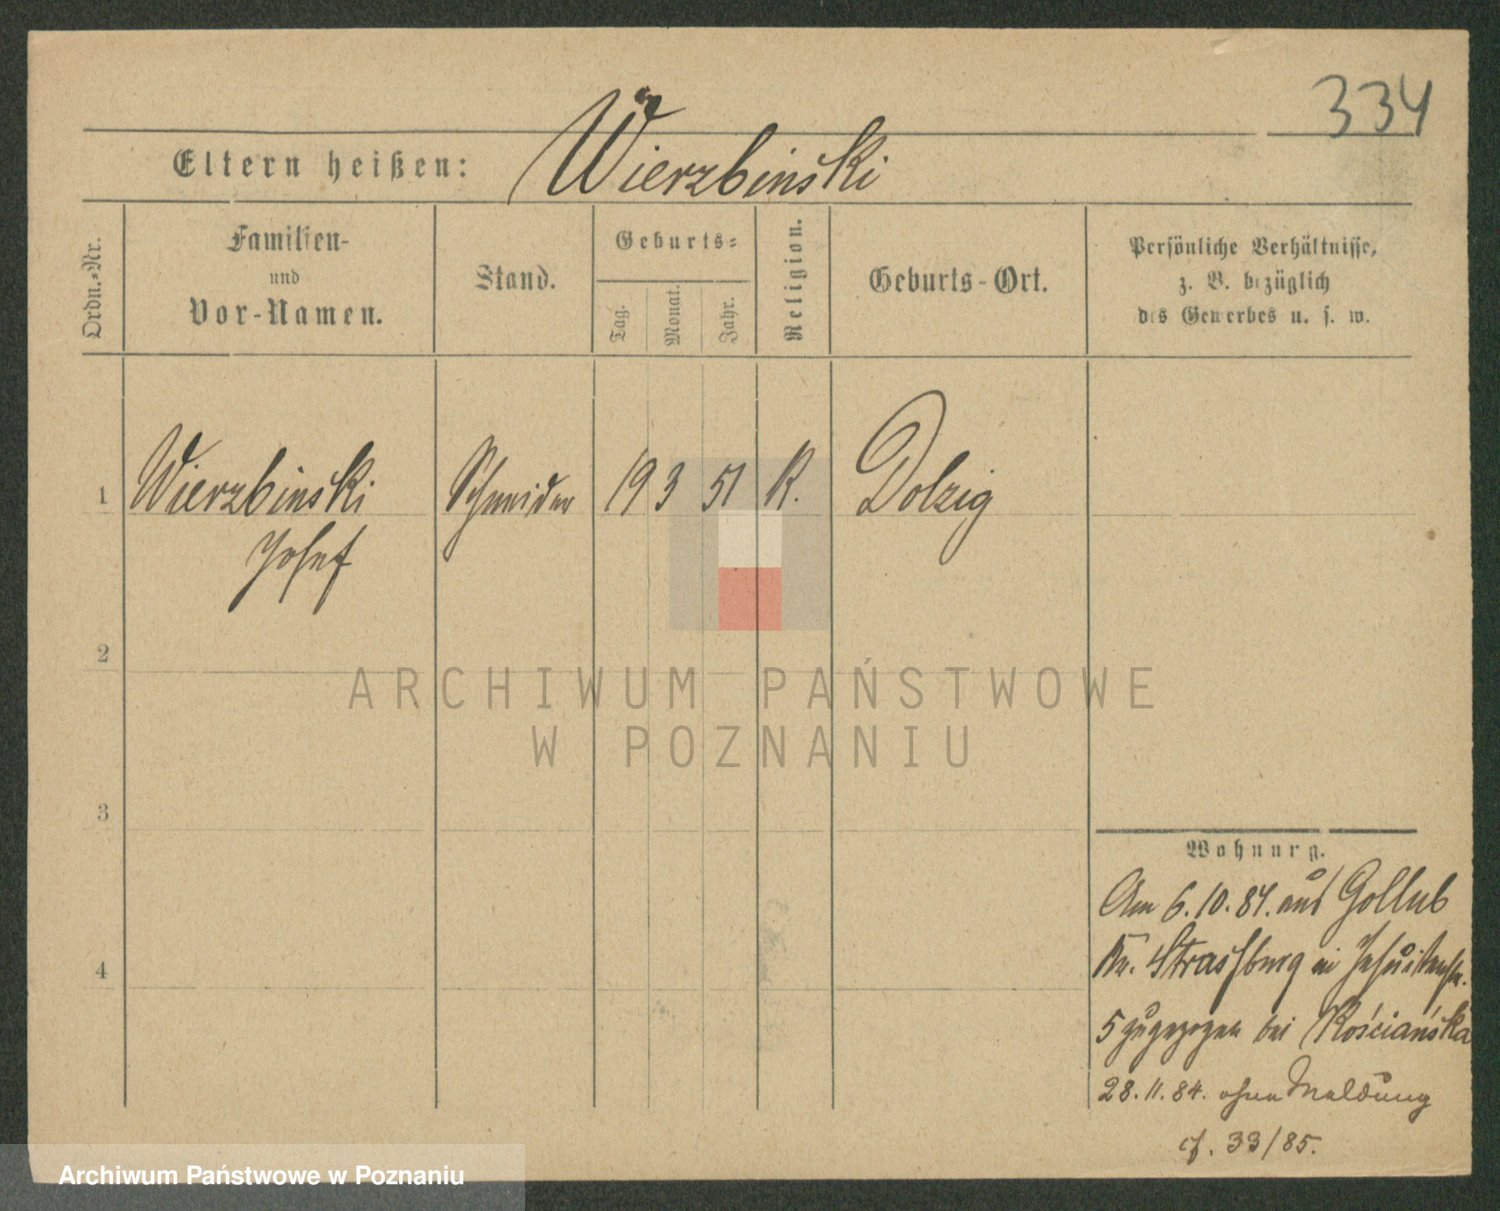 334
Eltern heißen: Wierzbinski
Ordn.-Nr.
Familien-
und
Vor-Namen.
Stand.
Geburts-
Tag.
Monat.
Jahr.
Religion.
Geburts-Ort.
Persönliche Verhältnisse,
z. B. bezüglich
des Gewerbes u. s. w.
1 Wierzbinski Schneider 19 3 51 K. Dolzig
Josef
2
3
4
ARCHIWUM PAŃSTWOWE
W POZNANIU
Wohnung.
Am 6.10.84. aus Gollub
Kr. Strassburg in Jesuitenstr.
5 zugezogen bei Kościańska
28.11.84. ohne Meldung
cf. 33/85.
Archiwum Państwowe w Poznaniu